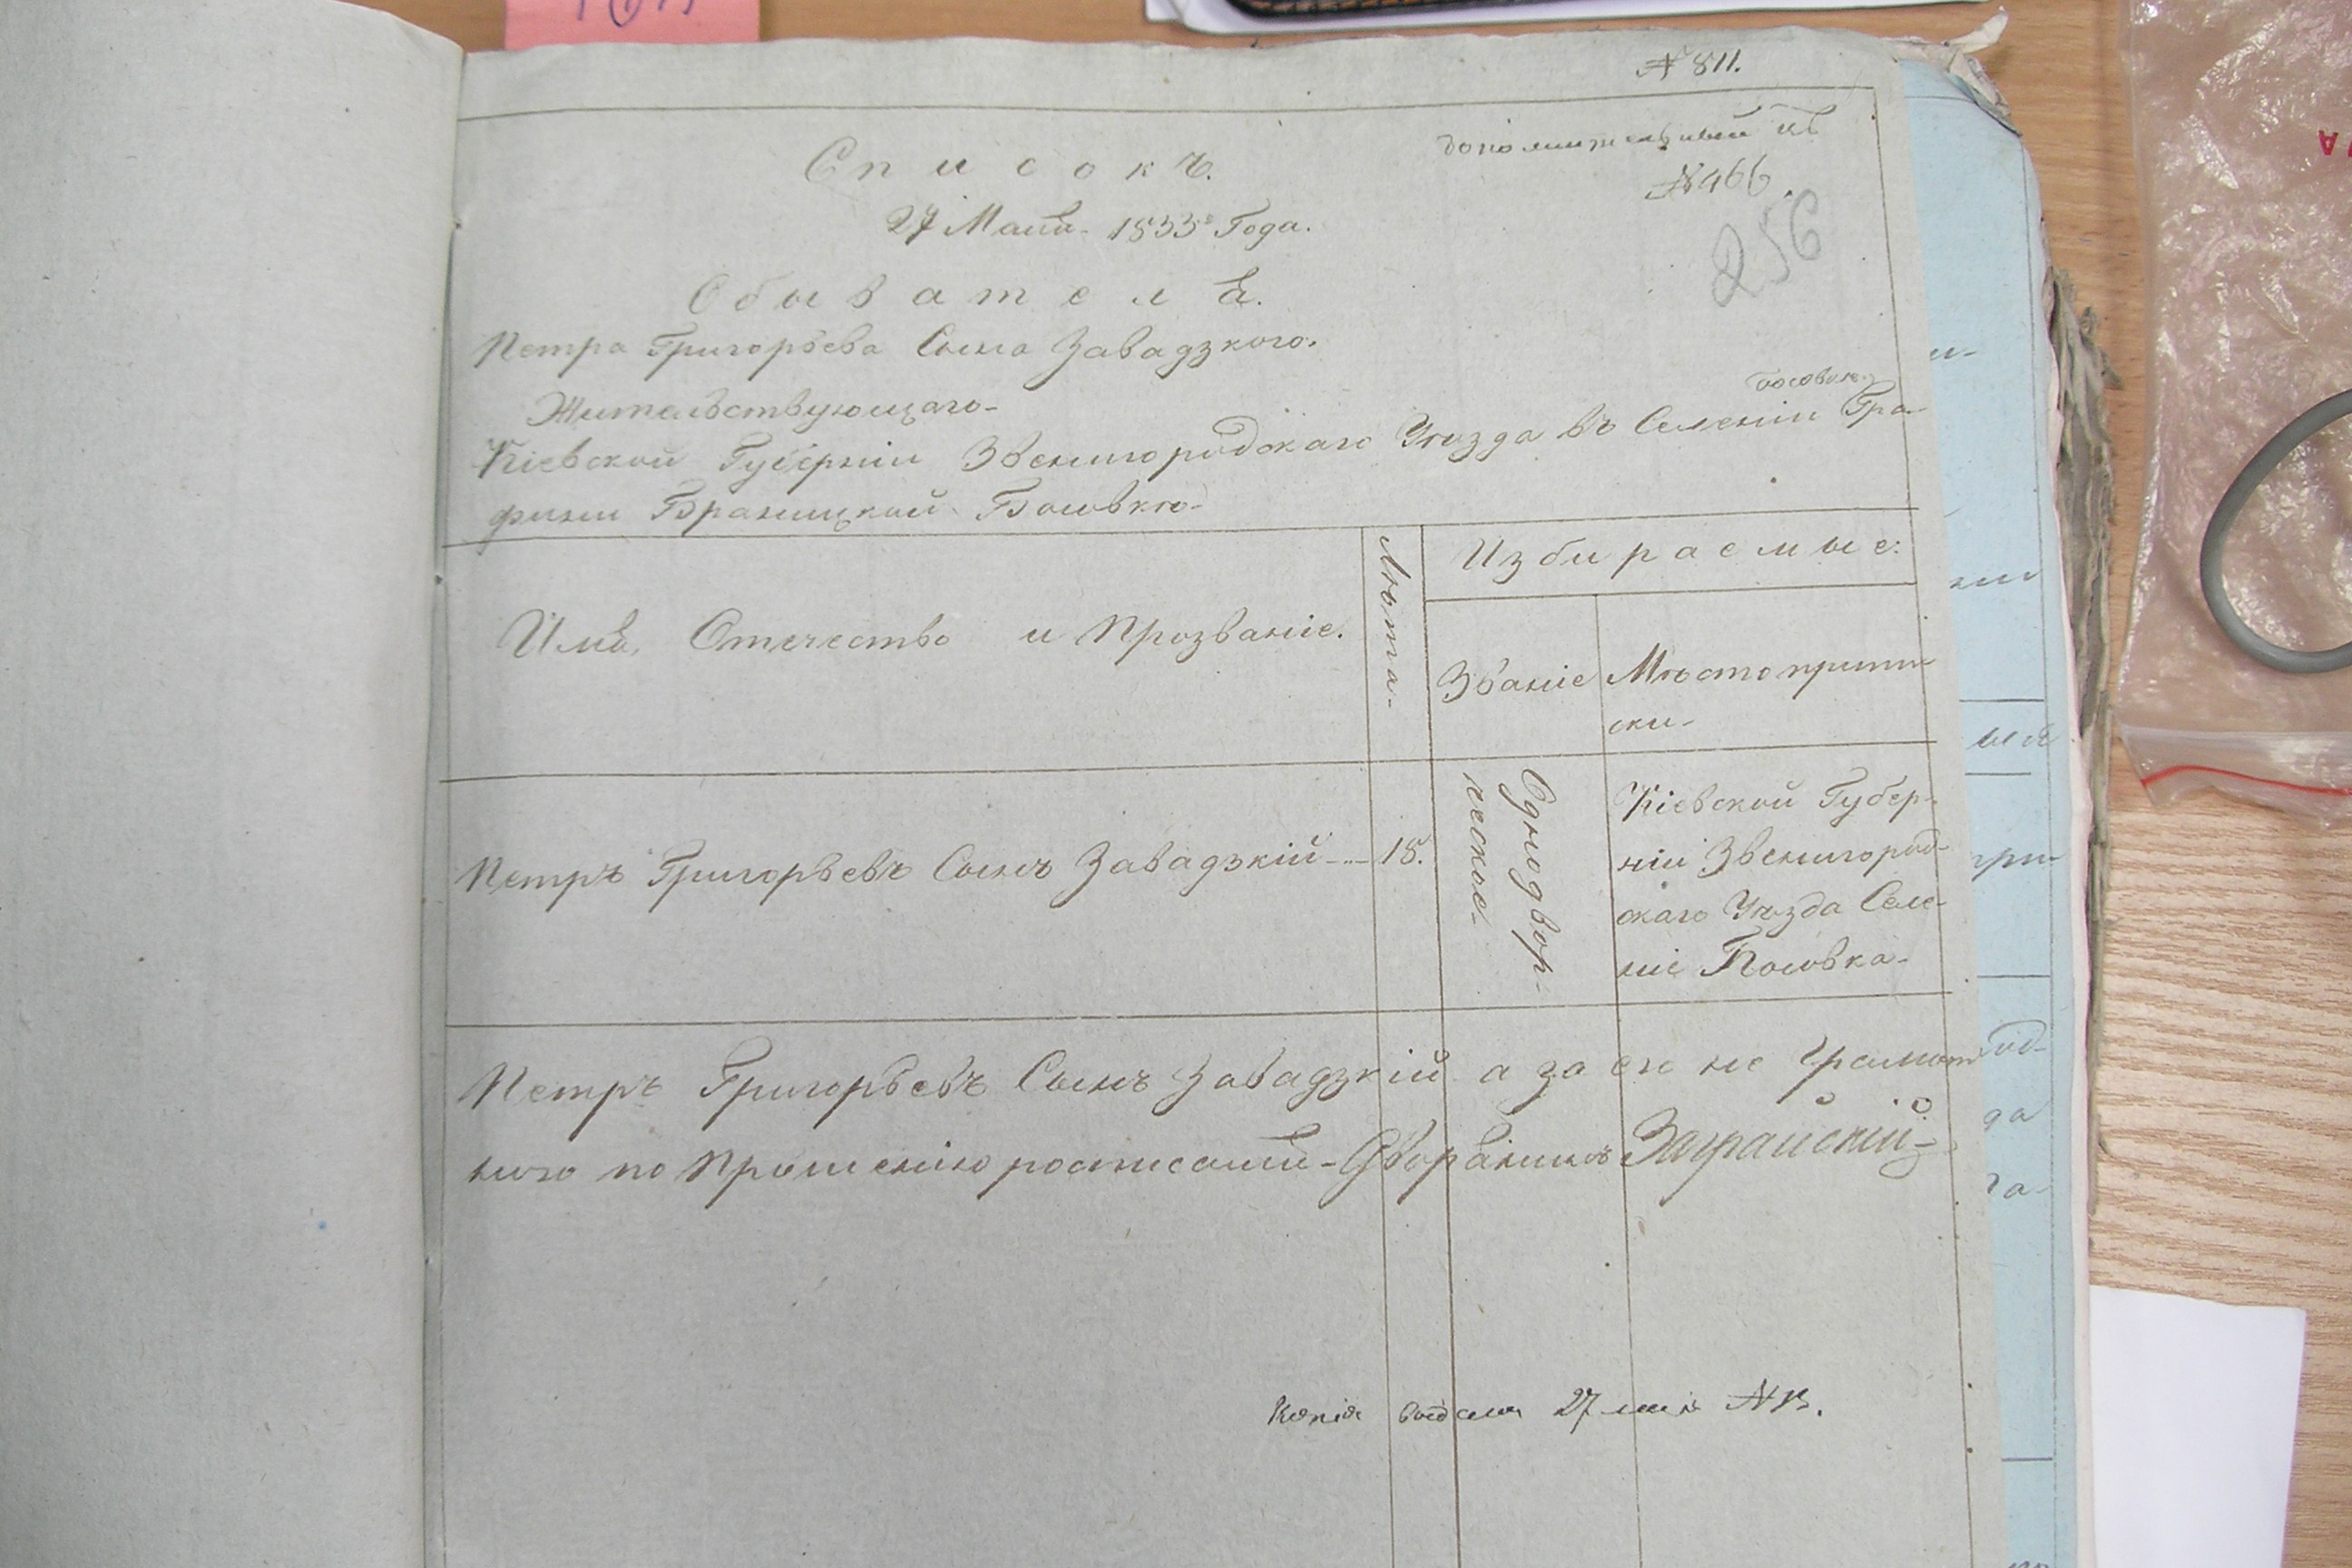 № 811.
дополнительный къ
№ 466.
256
Списокъ.
27 Маія 1833го Года.
Обывателя.
Петра Григорьева Сына Завадзкого.
Жительствующаго
Кіевской Губерніи Звенигородскаго Уѣзда въ Селеніи Гра-
фини Браницкой Босовкѣ
Имя, Отечество и Прозваніе.
Лѣта
Избираемые:
Званіе
Мѣсто припи-
ски
Петръ Григорьевъ Сынъ Завадзкій
18.
Однодвор-
ческое
Кіевской Губер-
ніи Звенигород-
скаго Уѣзда Селе-
ніе Босовка
Петръ Григорьевъ Сынъ Завадзкій а за его не Грамот
ного по Прошенію росписался Дворянинъ
Копія выдана 27 маія